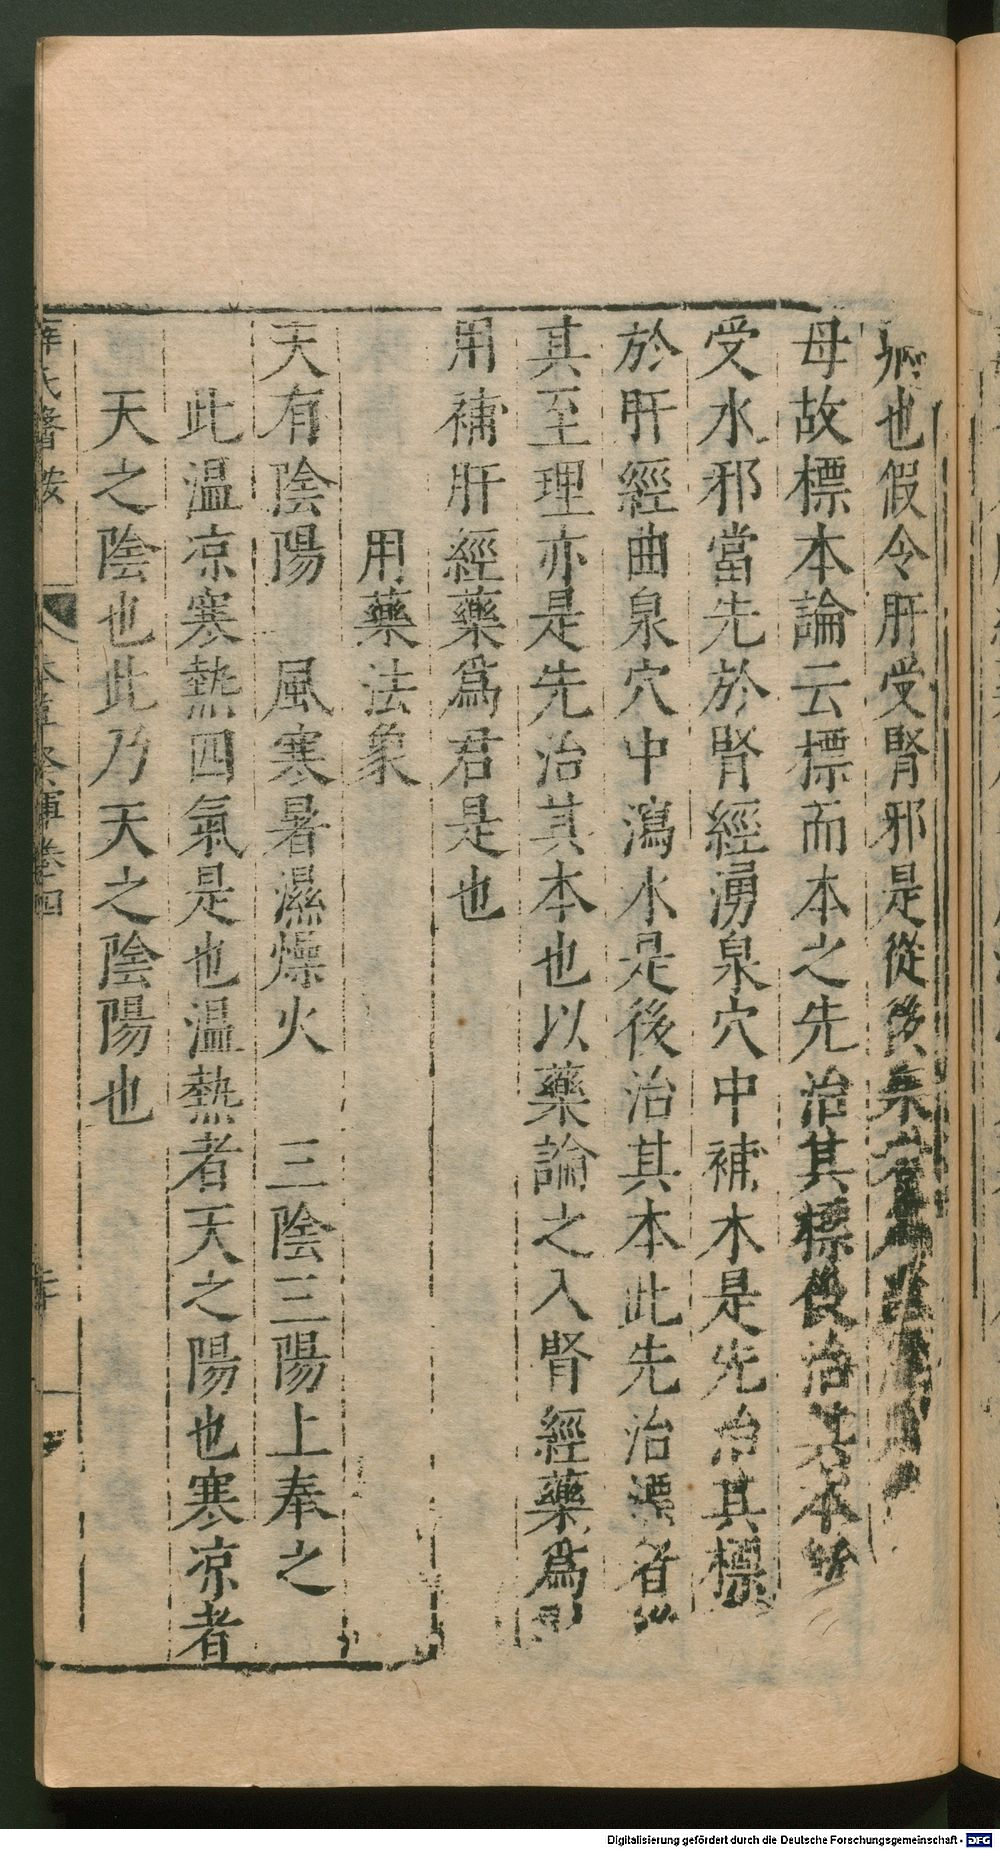 邪也假令肝受腎邪是從後來者爲
母故標本論云標而本之先治其標後治其本
受水邪當先於腎經湧泉穴中補木是先治其標
於肝經曲泉穴中瀉水是後治其本此先治標者
其至理亦是先治其本也以藥論之入腎經藥爲引
用補肝經藥爲君是也
用藥法象
天有陰陽　風寒暑濕燥火　三陰三陽上奉之
此温凉寒熱四氣是也温熱者天之陽也寒凉者
天之陰也此乃天之陰陽也
薛氏醫按　本草發揮卷四
Digitalisierung gefördert durch die Deutsche Forschungsgemeinschaft - DFG